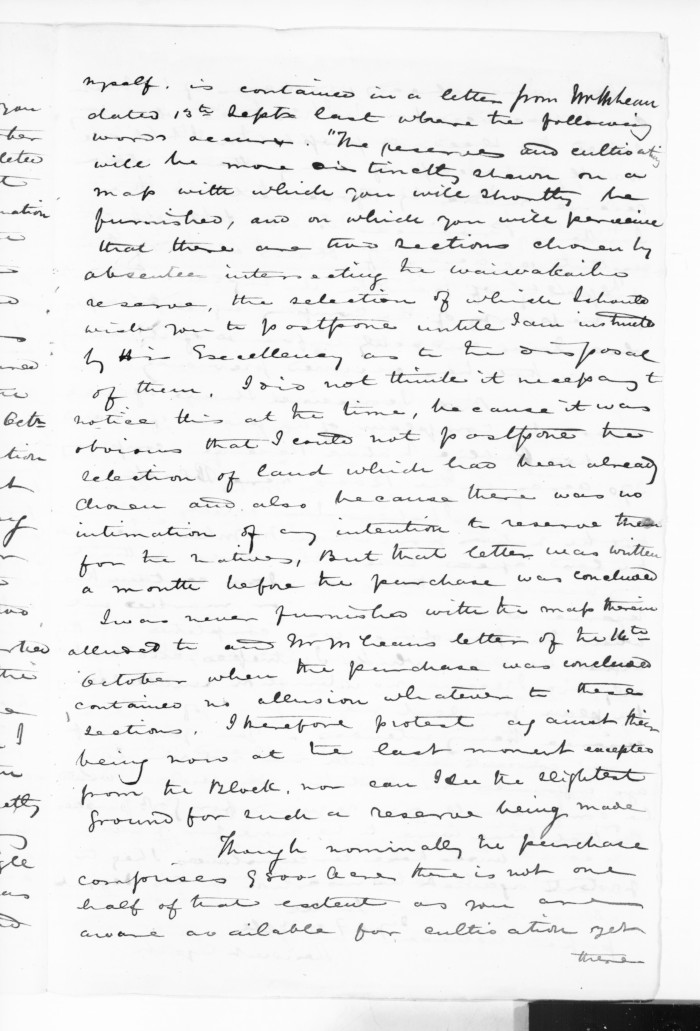 myself. is contained in a letter from Mr McLean
dated 13th Septr last where the following
words occur. "The reserves and cultivating
will be more distinctly shewn on a
map with which you will shortly be
furnished, and on which you will perceive
that there are two sections chosen by
absentee intersecting the waiwakaiho
reserve, the selection of which I should
wish you to postpone until I am instructed
by His Excellency as to the disposal
of them. I did not think it necessary to
notice this at the time, because it was
obvious that I could not postpone the
selection of land which had been already
chosen and also because there was no
intimation of any intention to reserve them
for the natives, But that letter was written
a month before the purchase was concluded
I was never furnished with the map therein
alluded to and Mr McLeans letter of the 16th
October when the purchase was concluded
contained no allusion whatever to these
sections. I therefore protest against them
being now at the last moment excepted
from the Block, nor can I see the slightest
ground for such a reserve being made
Though nominally the purchase
comprises 9800 Acres there is not one
half of that extent as you are
aware available for cultivation yet
there
you
Octr
tion
I